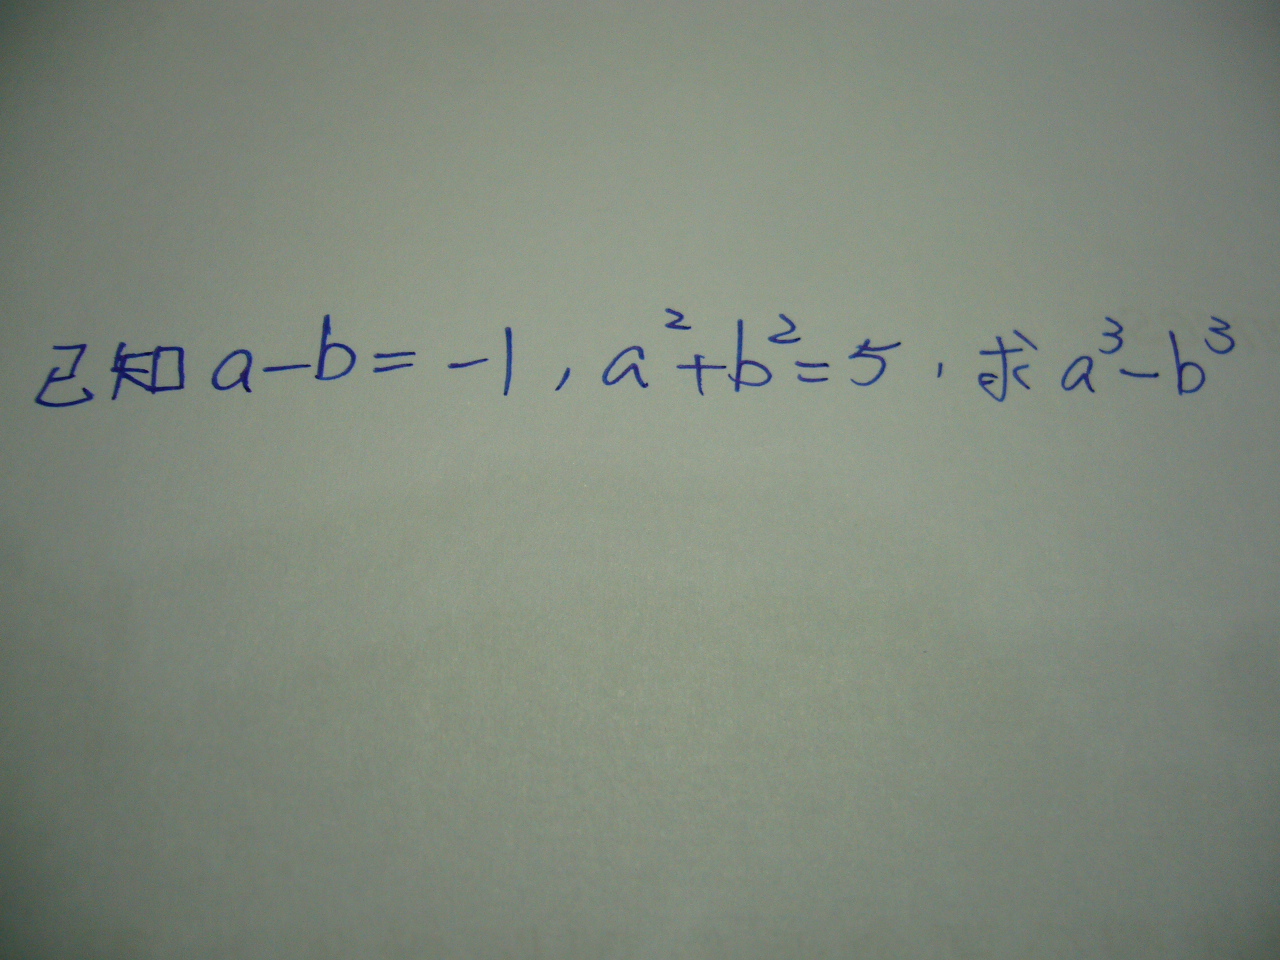 已知 a-b=-1, a²+b²=5. 求 a³-b³